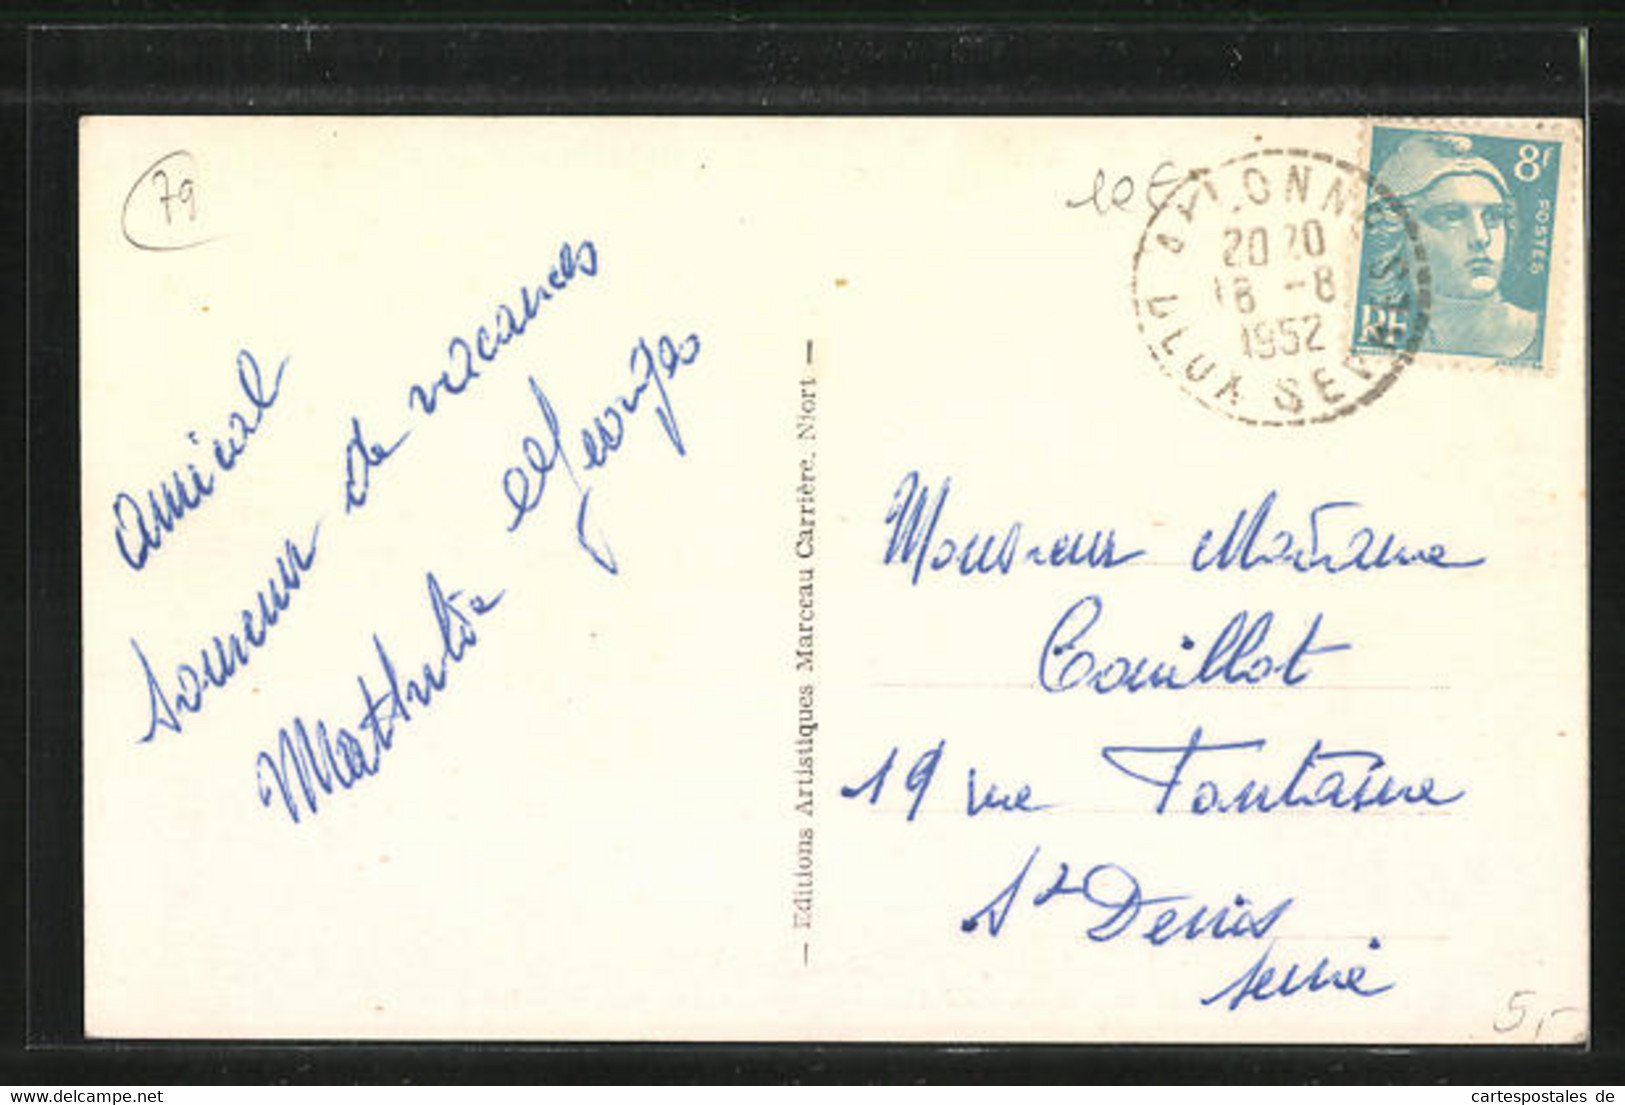 79
amical
Souvenir de vacances
Mathilde et Georges
— Editions Artistiques Marceau Carrière, Niort —
10€
BAYONNE
20 20
18 -8
1952
DEUX SEVRES
8f
POSTES
RF
Monsieur Madame
Couillot
19 rue Fontaine
St Denis
Seine
5,-
cartespostales de